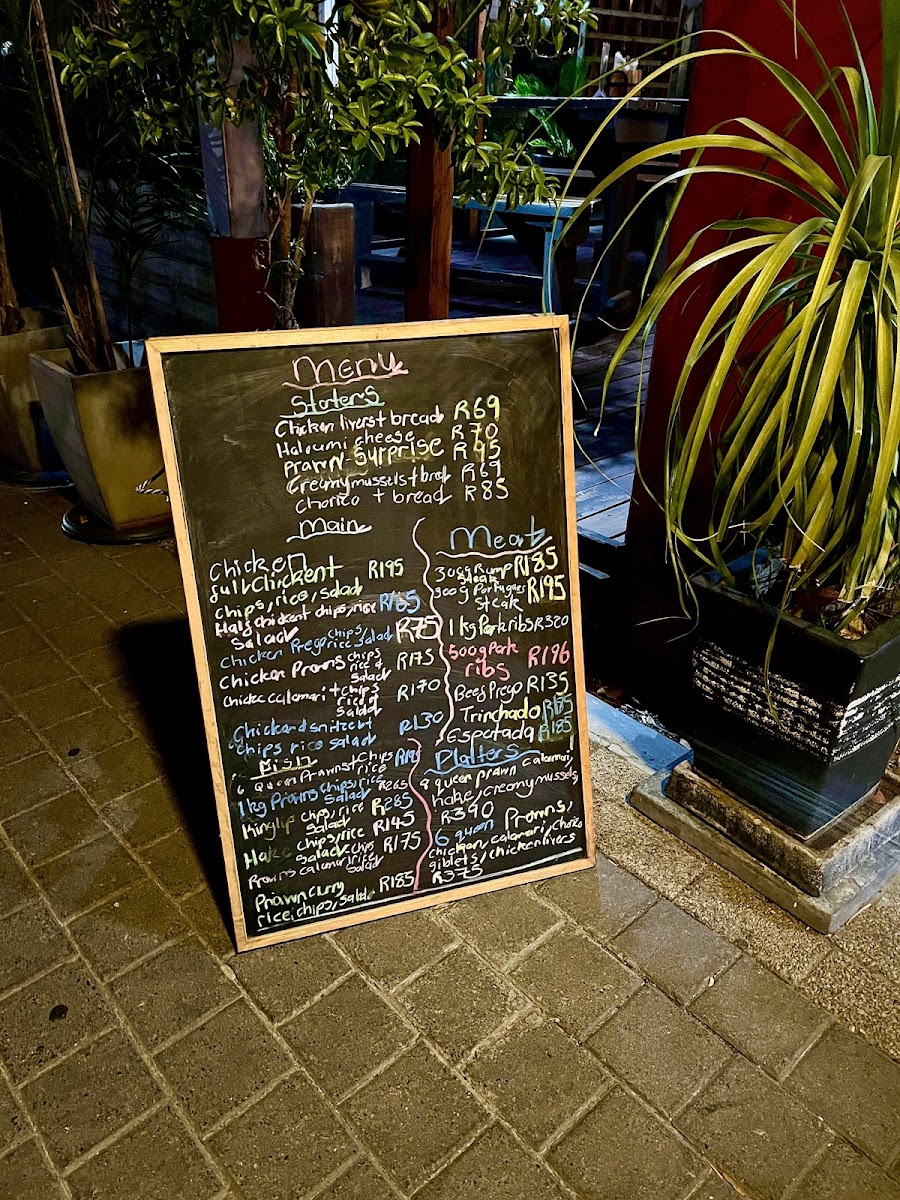 Menu
Starters
Chicken liverst bread R69
Haloumi cheese R70
Prawn-Surprise R95
Creamy mussels + bred R69
Chorico + bread R85
Main
Chicken
full chickent R195
chips, rice, salad
Half chickent chips, rice R165
Salad
Chicken Prego chips/ rice salad R75
Chicken Prawns chips rice + Salad R175
chicke calamari + chips rice + Salad R170
Chicken snitzelt R130
chips rice salad
Fish
6 Queen Prawns + Chips rice
1kg Prawns chips, rice Salad
Kinglip chips, rice Salad R285
Hake chips/rice Salad R145
Prawns calamari, rice chips Salad R175
Prawn curry
rice, chips, Salad R185
Meat
300g Rump Steak R185
300g Portugues Steak R195
1kg Pork ribs R320
500g Pork ribs R196
Beef Prego R135
Trinchado R185
Espetada R185
Platters
8 queen prawn Calamari,
hake/creamy mussels
R390
6 queen Prawns,
chicken, calamari, chorico
giblets/chicken livers
R375